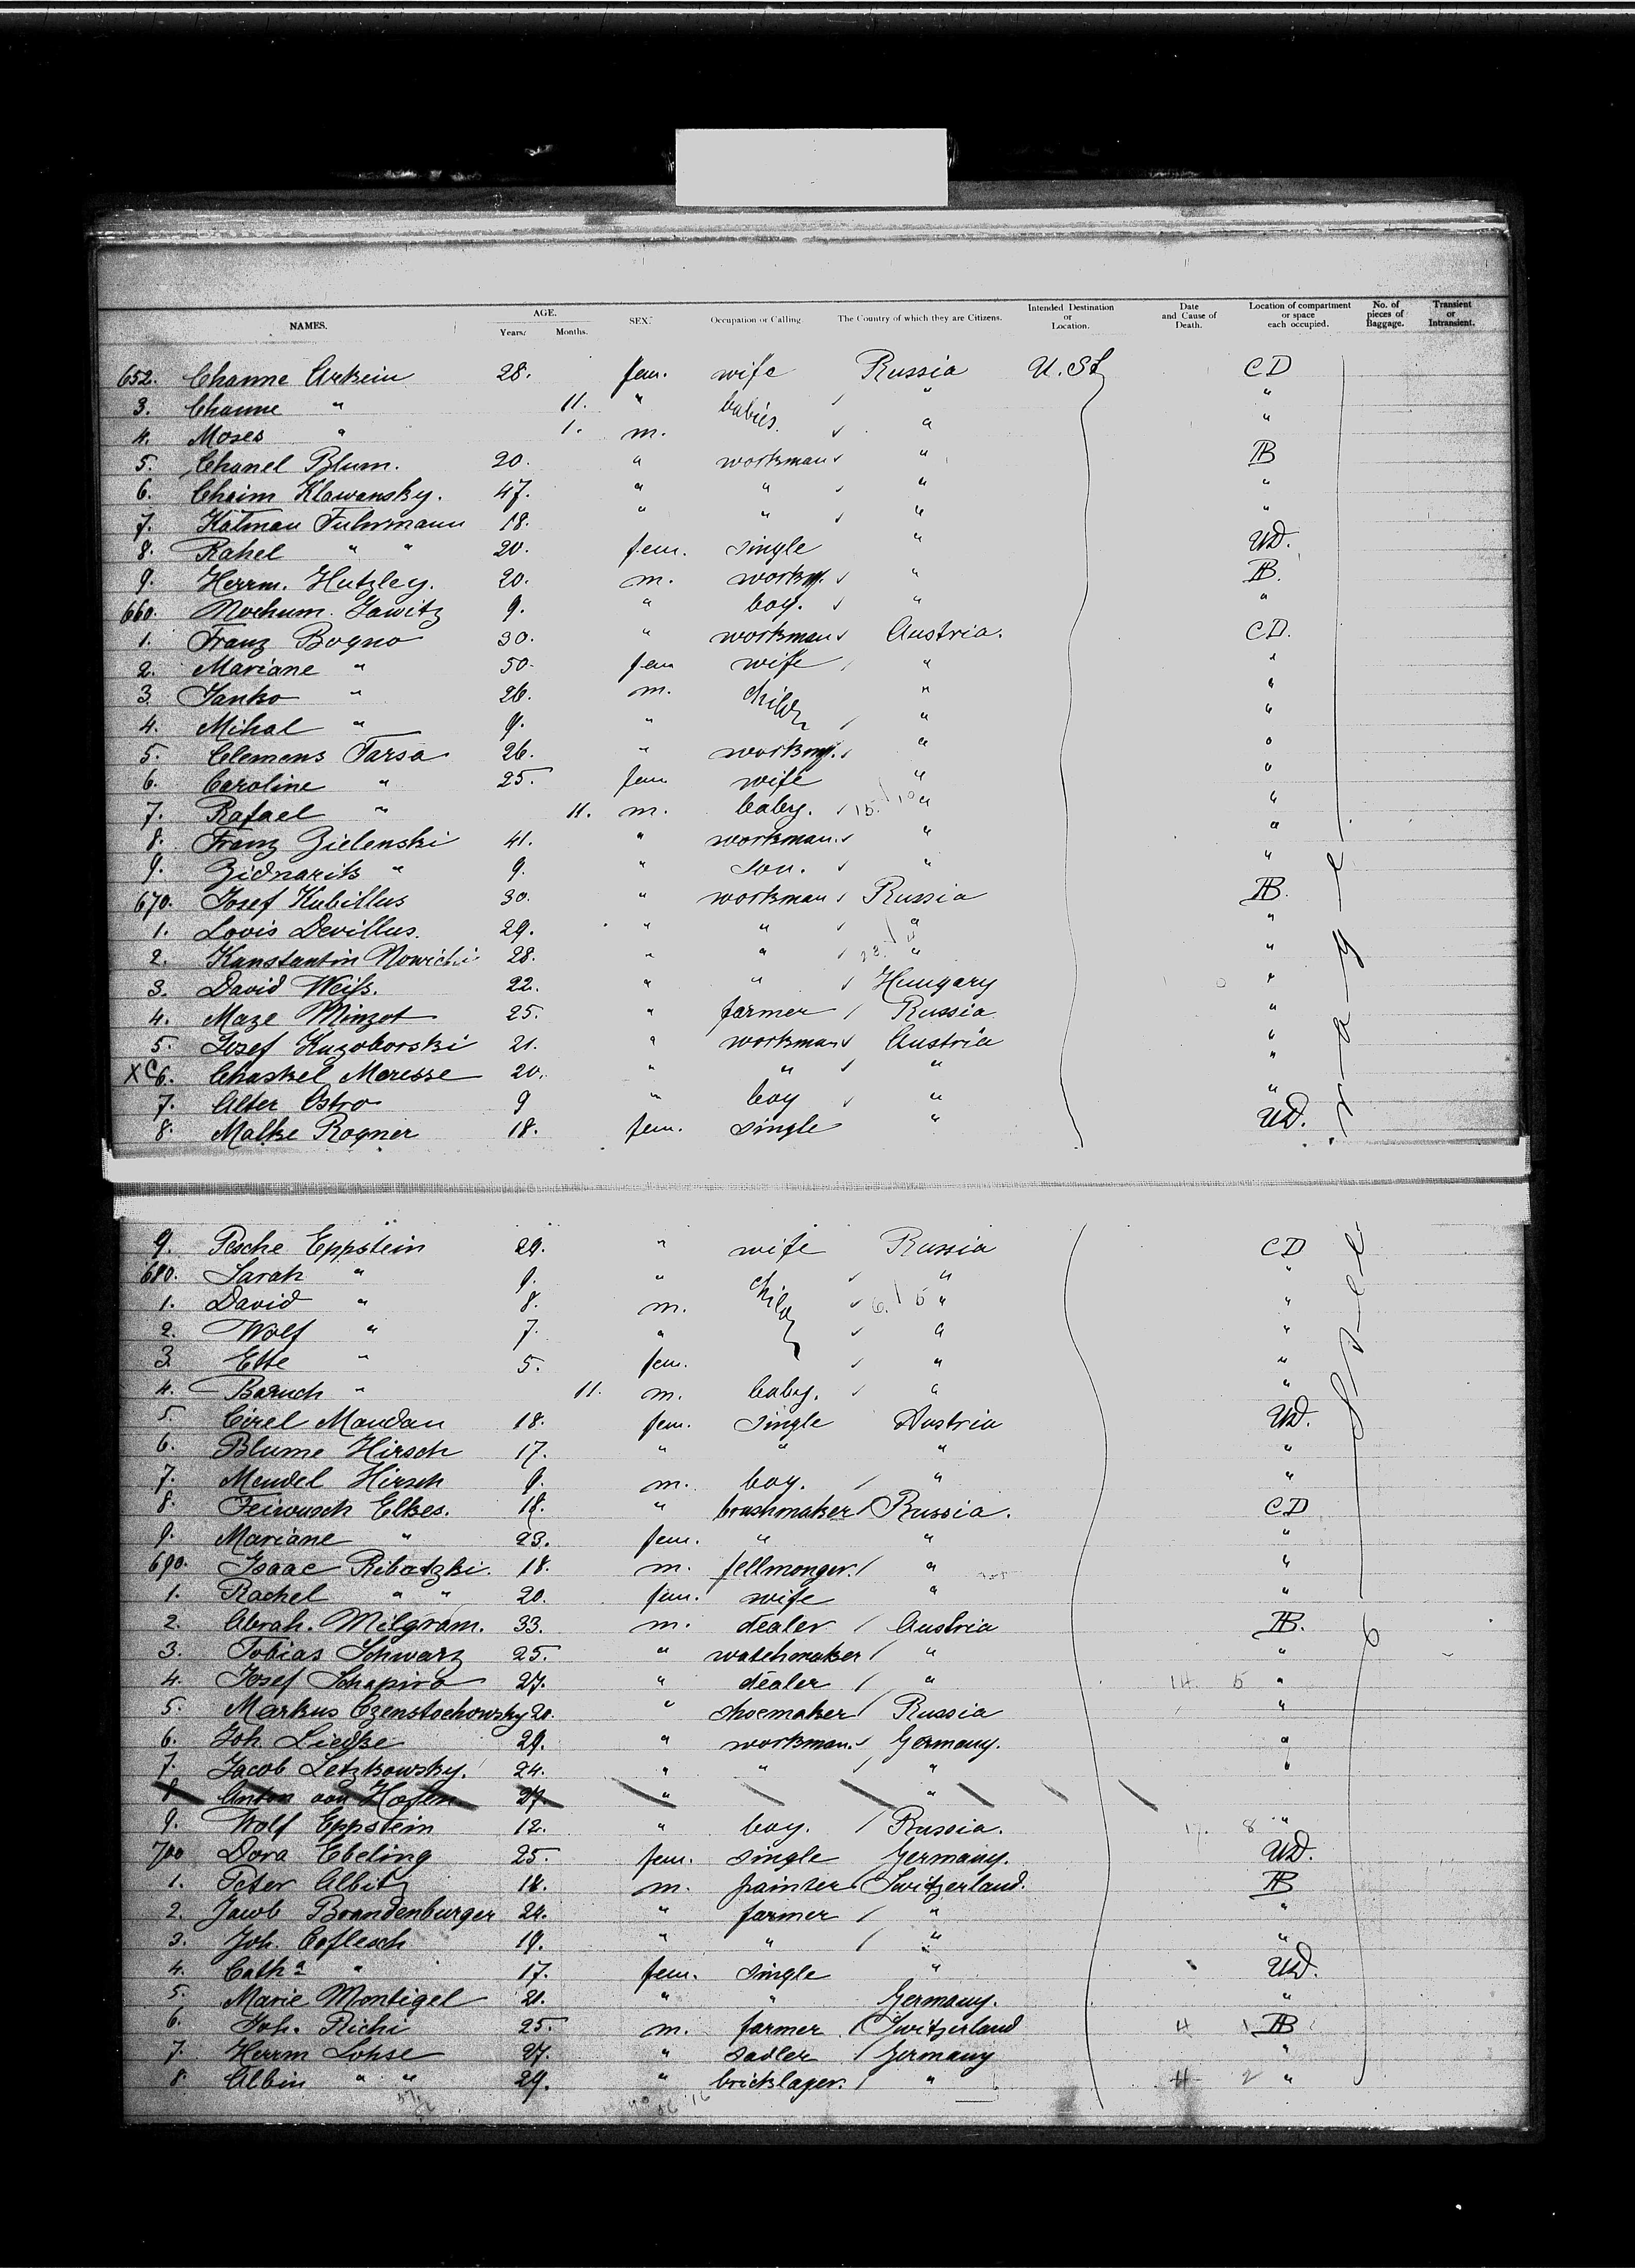 NAMES. AGE. Years. Months. SEX. Occupation or Calling. The Country of which they are Citizens. Intended Destination or Location. Date and Cause of Death. Location of compartment or space each occupied. No. of pieces of Baggage. Transient or Intransient.
652. Channe Arkein 28. fem. wife Russia U. St. CD
3. Channe " 11. " babies. " "
4. Moses " 1. m. " "
5. Chanel Blum. 20. " workman " AB
6. Chaim Klawansky. 47. " " " "
7. Katman Fuhrmann 18. " " " "
8. Rahel " " 20. fem. single " UD.
9. Herrm. Hutzley. 20. m. workm. " AB.
660. Nochum Sawitz 9. " boy. " "
1. Franz Bogno 30. " workman Austria. CD.
2. Mariane " 50. fem wife " "
3. Janko " 26. m. childr. " "
4. Mihal " 9. " " "
5. Clemens Tarsa 26. " workm. " "
6. Caroline " 25. fem wife " "
7. Rafael " 11. m. baby. " "
8. Franz Zielenski 41. " workman. " "
9. Zidnarik " 9. " son. " "
670. Josef Kubillus 30. " workman Russia AB.
1. Lovis Devillus. 29. " " " "
2. Kanstantin Nowicki 28. " " " "
3. David Weiss. 22. " " Hungary "
4. Maze Minzot 25. " farmer Russia "
5. Josef Kuzoborski 21. " workman Austria "
XC6. Chaskel Meresse 20. " " " "
7. Alter Ostro 9 " boy " "
8. Malke Rogner 18. fem. single " UD.
9. Pesche Eppstein 29. " wife Russia CD
680. Sarah " 9. " childr " "
1. David " 8. m. " "
2. Wolf " 7. " " "
3. Ette " 5. fem. " "
4. Baruch " 11. m. baby. " "
5. Cirel Mandau 18. fem. single Austria UD.
6. Blume Hirsch 17. " " " "
7. Mendel Hirsch 9. m. boy. " "
8. Feiwusch Elkes. 18. " brushmaker Russia. CD
9. Mariane " 23. fem. " " "
690. Isaac Ribatzki. 18. m. fellmonger. " "
1. Rachel " " 20. fem. wife " "
2. Abrah. Milgram. 33. m. dealer Austria AB.
3. Tobias Schwarz 25. " watchmaker " "
4. Josef Schapiro 27. " dealer " 14. 5 "
5. Markus Czenstochowsky 20. " shoemaker Russia "
6. Joh. Liedke 29. " workman. Germany. "
7. Jacob Letzkowsky. 24. " " " "
8 Anton von Hofen 27. " "
9. Wolf Eppstein 12. " boy. Russia. 17. 8 "
700 Dora Ebeling 25. fem. single Germany. UD.
1. Peter Albitz 18. m. painter Switzerland. AB
2. Jacob Brandenburger 24. " farmer " "
3. Joh. Caflesch 19. " " " "
4. Catha " 17. fem. single " UD.
5. Marie Montigel 21. " " Germany. "
6. Joh. Richi 25. m. farmer Switzerland 4 1 AB
7. Herrm Lohse 27. " sadler Germany "
8. Albin " " 29. " bricklayer. " 4 2 "